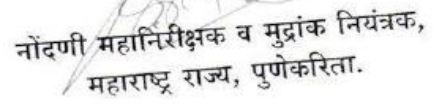 नोंदणी महानिरीक्षक व मुद्रांक नियंत्रक,
महाराष्ट्र राज्य, पुणेकरिता.